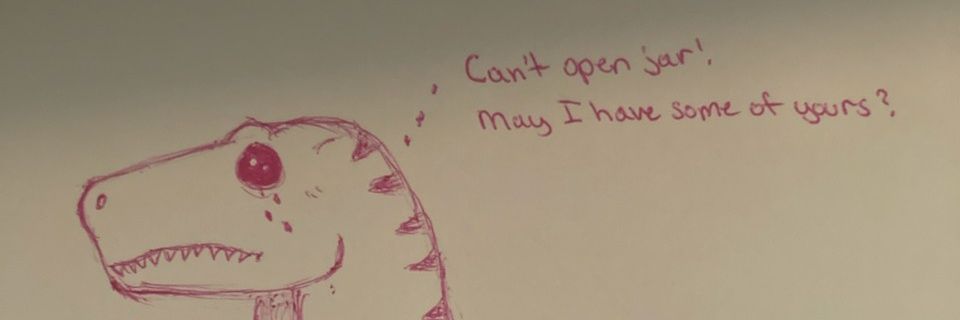 Can't open jar!
May I have some of yours?